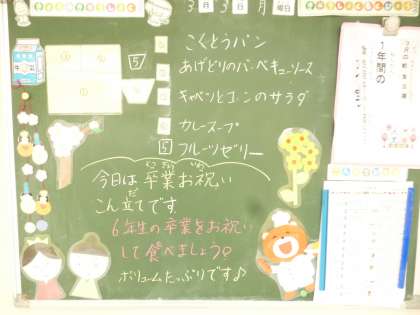 3 日 3 日 月 曜日
こくとうパン
あげどりのバーベキューソース
キャベツとコーンのサラダ
カレースープ
5 フルーツゼリー
5
今日は卒業お祝い
こん立てです。
6年生の卒業をお祝い
して食べましょう♡
ボリュームたっぷりです♪
1年間の